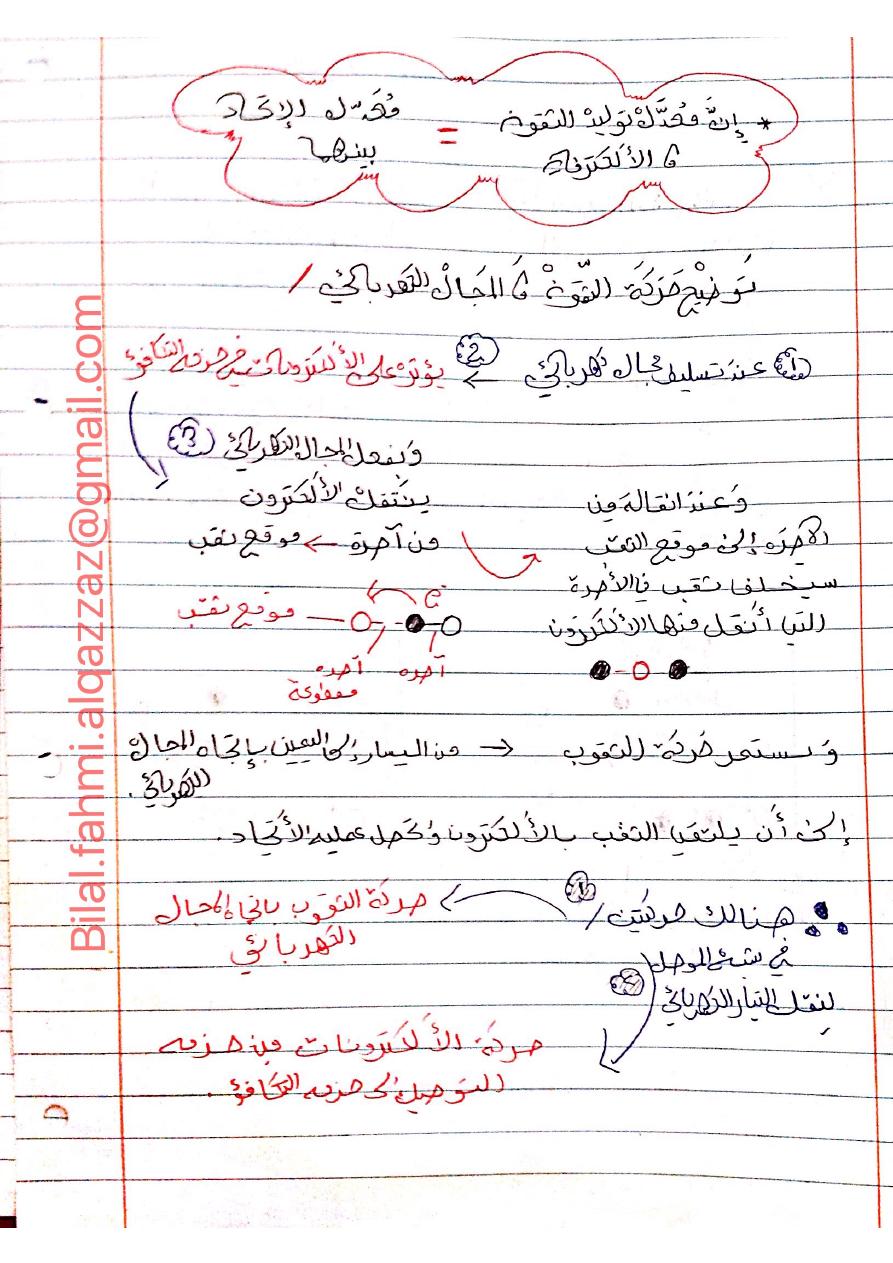 * إنَّ مُعَدَّلْ توليدْ الثقوبْ = مُعَدّل الإتحاد
& الألكترونات بينهما
تَوضيح حَرَكَة الثقوبْ & المَجَالْ الكهربائي /
① عندَ تسليط مجال كهربائي
② يؤثرْ على الألكترونات في حزمه التكافؤ
③ وَبفعل المجال الكهربائي
ينتقلْ الألكترون
من آصرة ← موقع ثقب
وَعندَ انتقالهَ مِن
الآصره إلىْ موقع الثقب
سيخلف ثقب في الأصرة
التي أنتقل منها الألكترون
موقع ثقب
آصره
آصره
مقطوعة
وَ تستمر حَركة الثقوب → من اليسار إلى اليمين بإتجاه المجال
الكهربائي.
إلىْ أن يلتقي الثقب بالألكترون وتحصل عمليه الأتحاد.
∴ هنالك حركتين / ①
حركة الثقوب باتجاه المجال
الكهربائي
في شبه الموصل
لنقل التيار الكهربائي
②
حركة الألكترونات من حزمه
التوصيل إلى حزمه التكافؤ.
Bilal.fahmi.alqazzaz@gmail.com